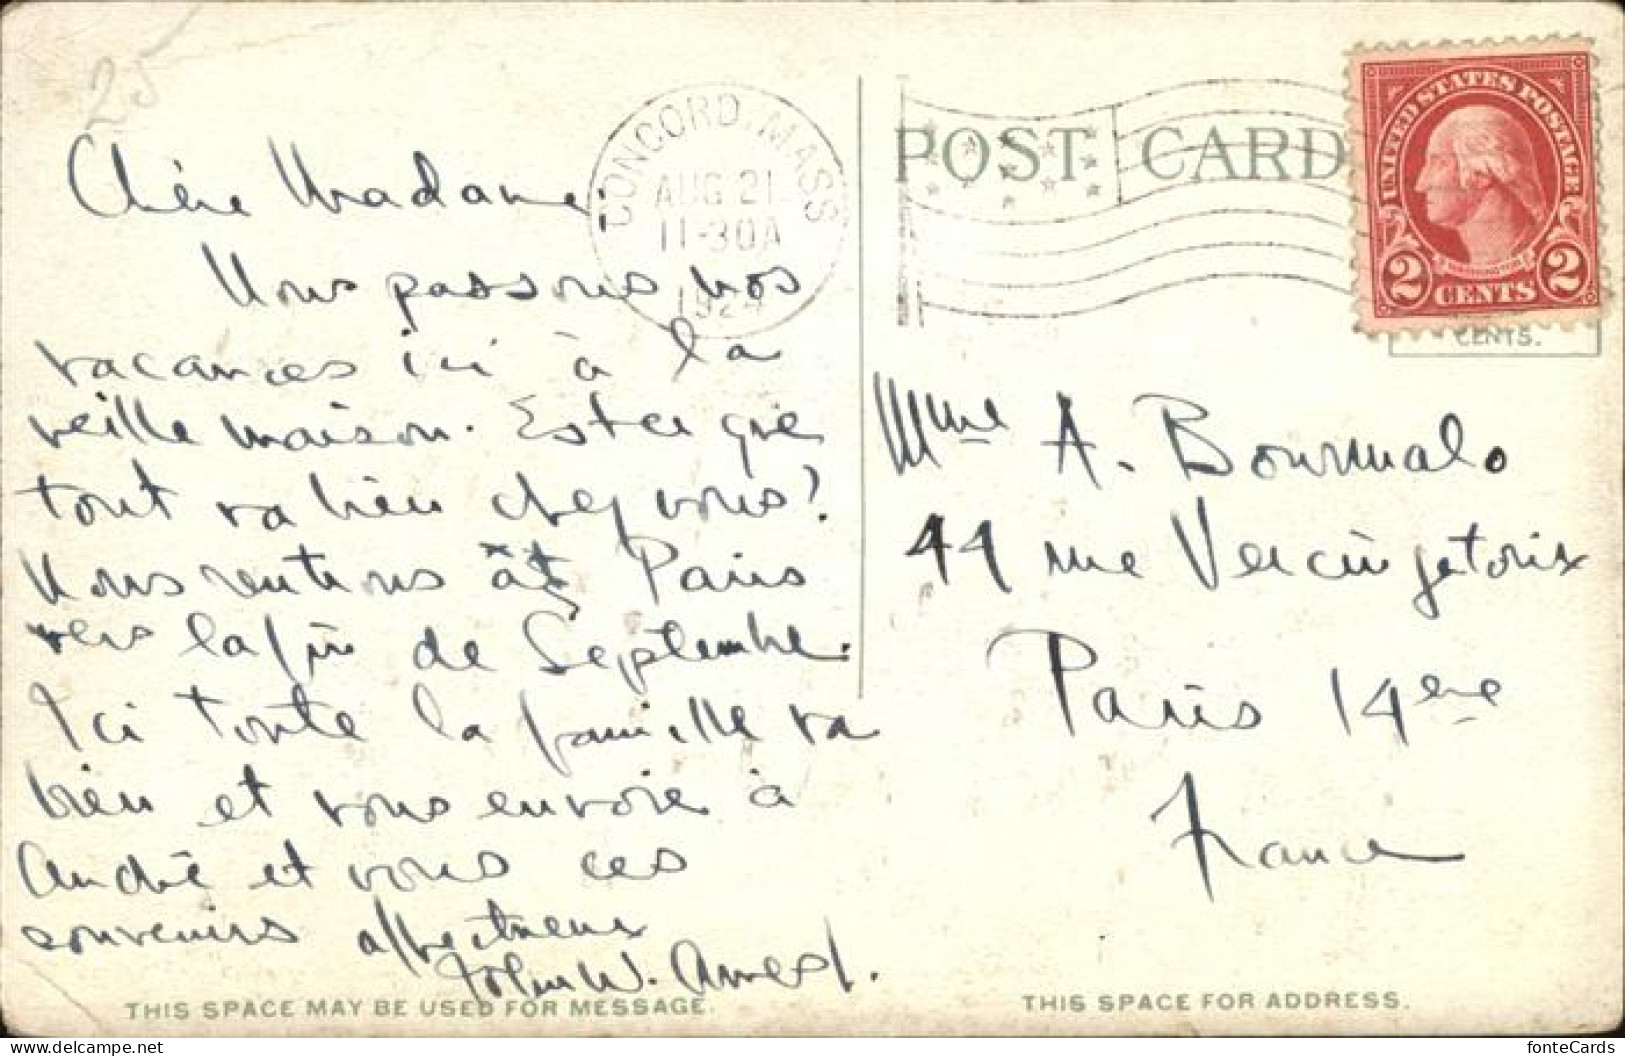 25
Chère Madame.
Nous passons nos
vacances ici à la
veille maison. Est ce que
tout va bien chez vous?
Nous rentrons à Paris
vers la fin de Septembre.
Ici toute la famille va
bien et vous envoie à
André et vous ces
souvenirs affectueux
John W. Ames
THIS SPACE MAY BE USED FOR MESSAGE.
CONCORD, MASS
AUG 21
11-30A
1924
POST CARD
UNITED STATES POSTAGE
2 CENTS 2
CENTS.
Mme A. Bournualo
44 rue Vercingetorix
Paris 14eme
France
THIS SPACE FOR ADDRESS.
fonteCards